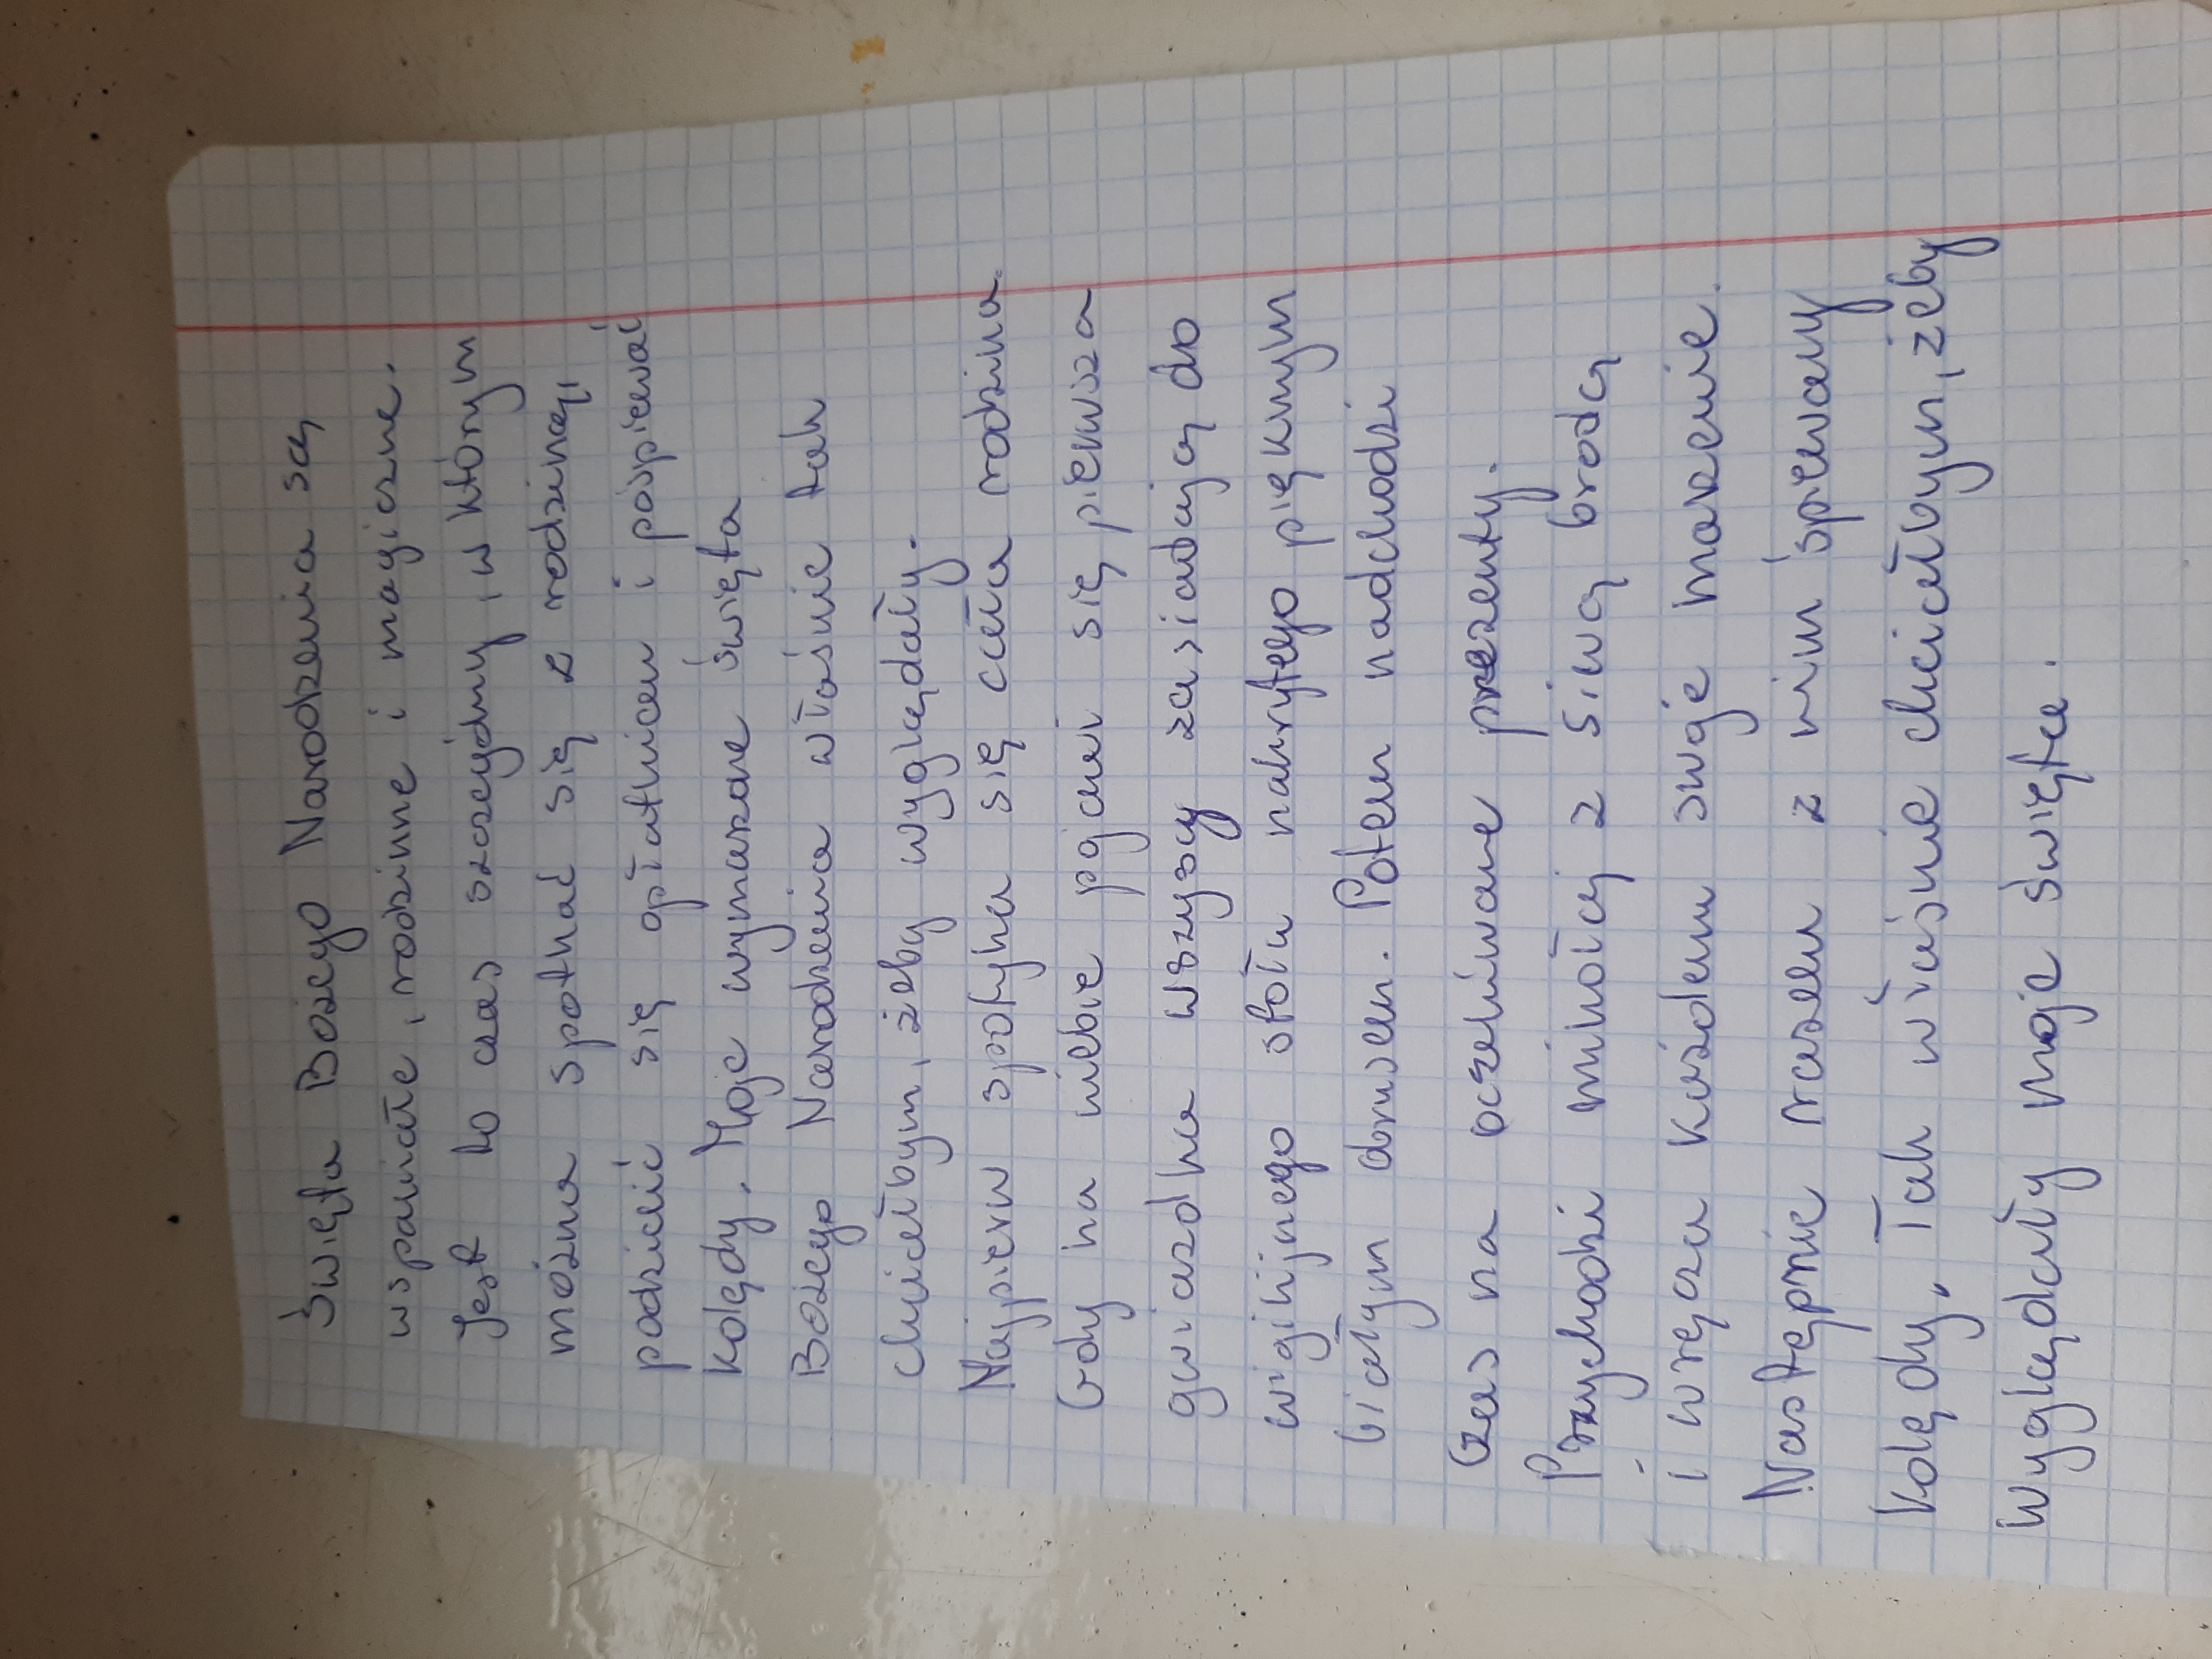 Święta Bożego Narodzenia są
wspaniałe, rodzinne i magiczne.
Jest to czas szczególny, w którym
można spotkać się z rodziną,
podzielić się opłatkiem i pośpiewać
kolędy. Moje wymarzone święta
Bożego Narodzenia właśnie tak
chciałbym, żeby wyglądały.
Najpierw spotyka się cała rodzina.
Gdy na niebie pojawi się pierwsza
gwiazdka wszyscy zasiadają do
wigilijnego stołu nakrytego pięknym
białym obrusem. Potem nadchodzi
czas na oczekiwane prezenty.
Przychodzi mikołaj z siwą brodą
i wręcza każdemu swoje marzenie.
Następnie razem z nim śpiewamy
kolędy. Tak właśnie chciałbym, żeby
wyglądały moje święta.